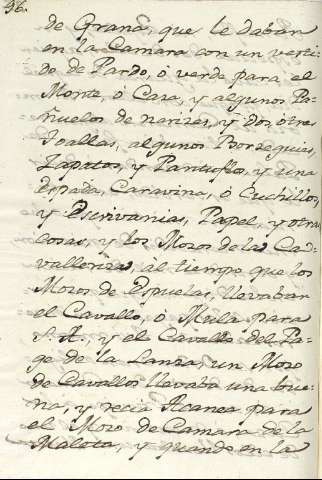 96.
de Grana, que le daban
en la Camara con un vesti-
do de Pardo, ó verde para el
Monte, ó Caza, y algunos Pa-
ñuelos de narizes, y dos, ó tres
Toallas, algunos Borzeguies,
Zapatos, y Pantuflos, y una
espada, Caravina, ó Cuchillos,
y Escrivanias, Papel, y otras
cosas, y los Mozos de la Ca-
valleriza, al tiempo que los
Mozos de Espuelas, llevaban
el Cavallo, ó Mula para
S. A., y el Cavallo del Pa-
ge de la Lanza, un Mozo
de Cavallos llevaba una bue-
na, y recia Acanea para
el Mozo de Camara de la
Maleta, y quando en la